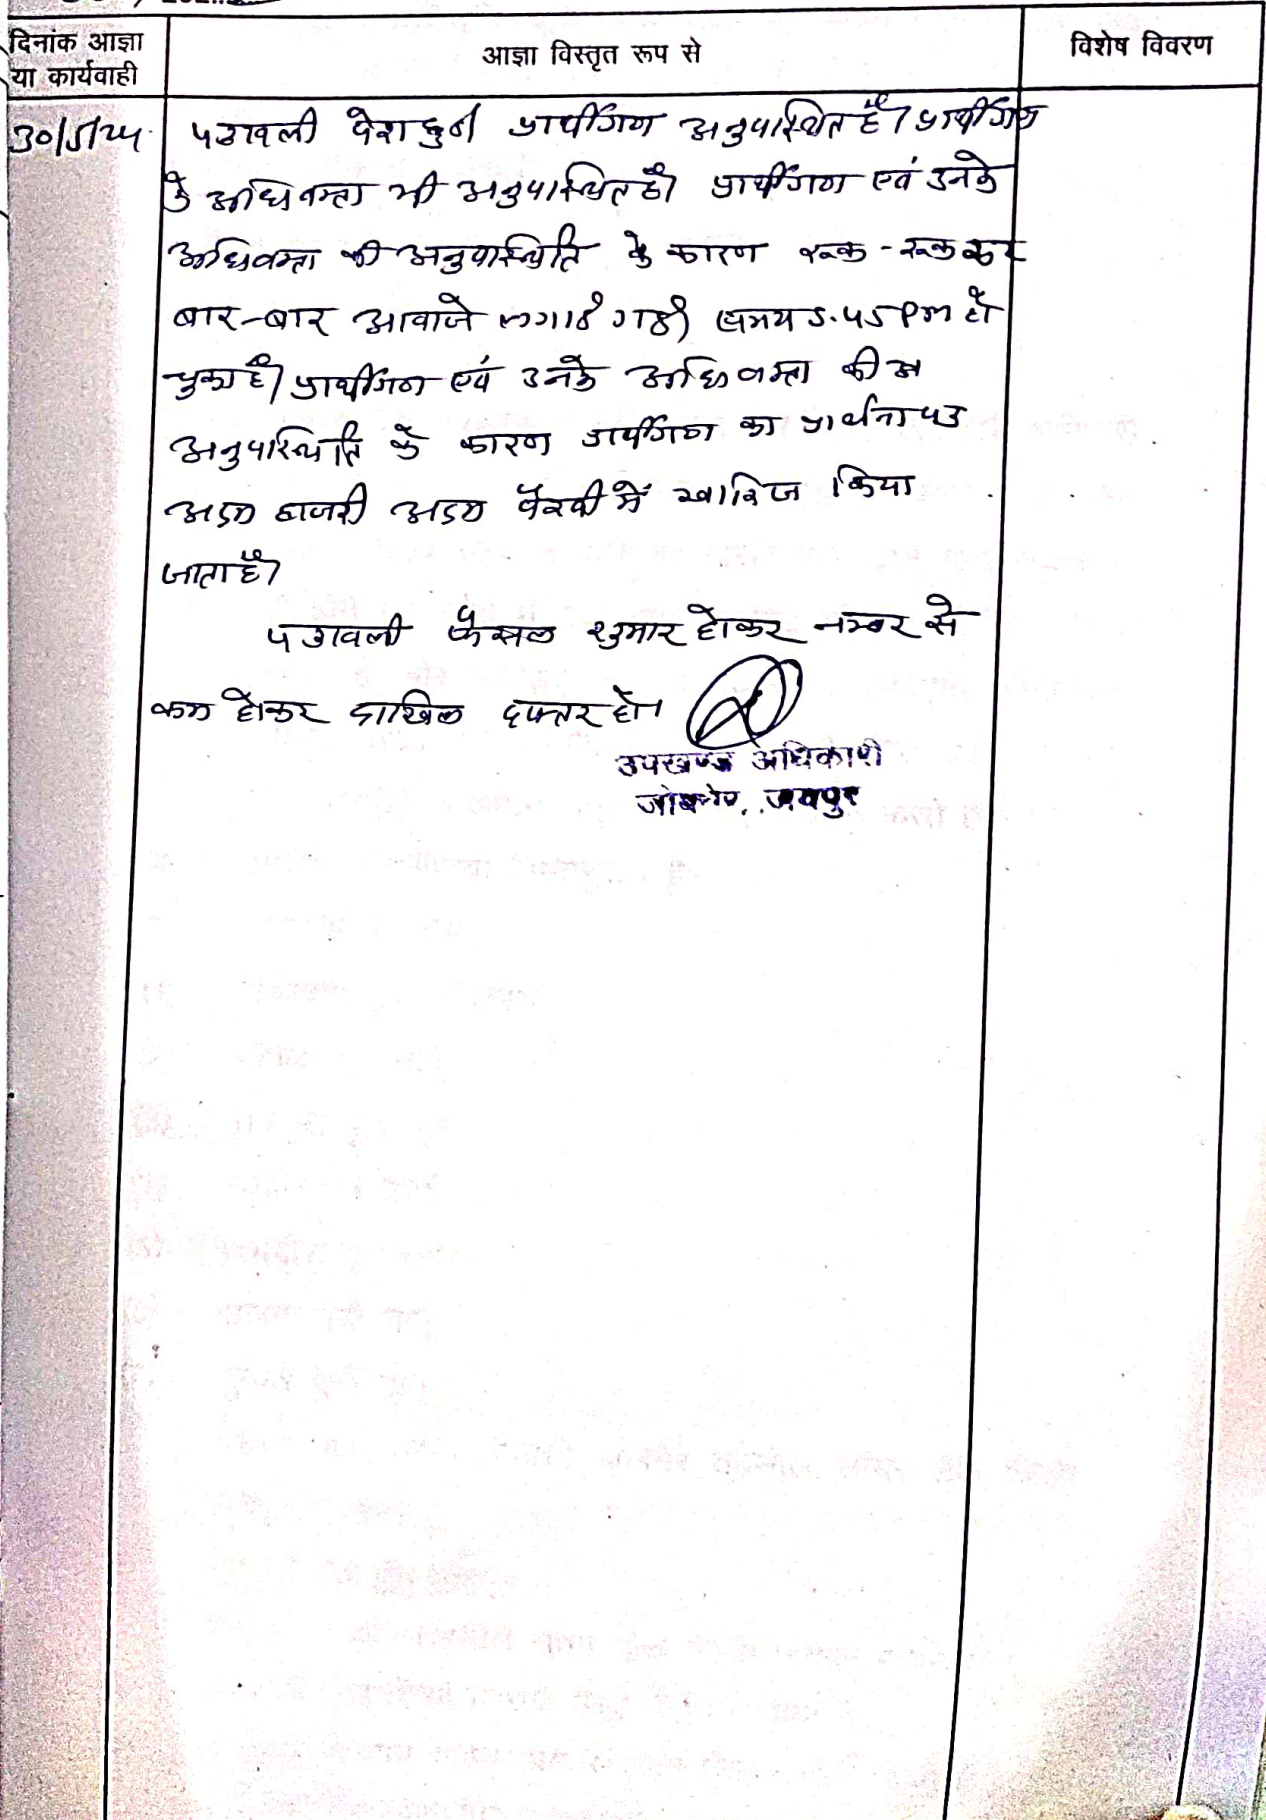 दिनांक आज्ञा
या कार्यवाही
आज्ञा विस्तृत रूप से
विशेष विवरण
30/5/24
पत्रावली पेश हुई। प्रार्थीगण अनुपस्थित है। प्रार्थीगण
के अधिवक्ता भी अनुपस्थित है। प्रार्थीगण एवं उनके
अधिवक्ता की अनुपस्थिति के कारण रूक-रूक कर
बार-बार आवाजे लगाई गई। समय 5.45 PM हो
चुका है। प्रार्थीगण एवं उनके अधिवक्ता की
अनुपस्थिति के कारण प्रार्थीगण का प्रार्थना पत्र
अदम हाजरी अदम पैरवी में खारिज किया
जाता है।
पत्रावली फैसल शुमार होकर नम्बर से
कम होकर दाखिल दफ्तर हो।
उपखण्ड अधिकारी
जयपुर